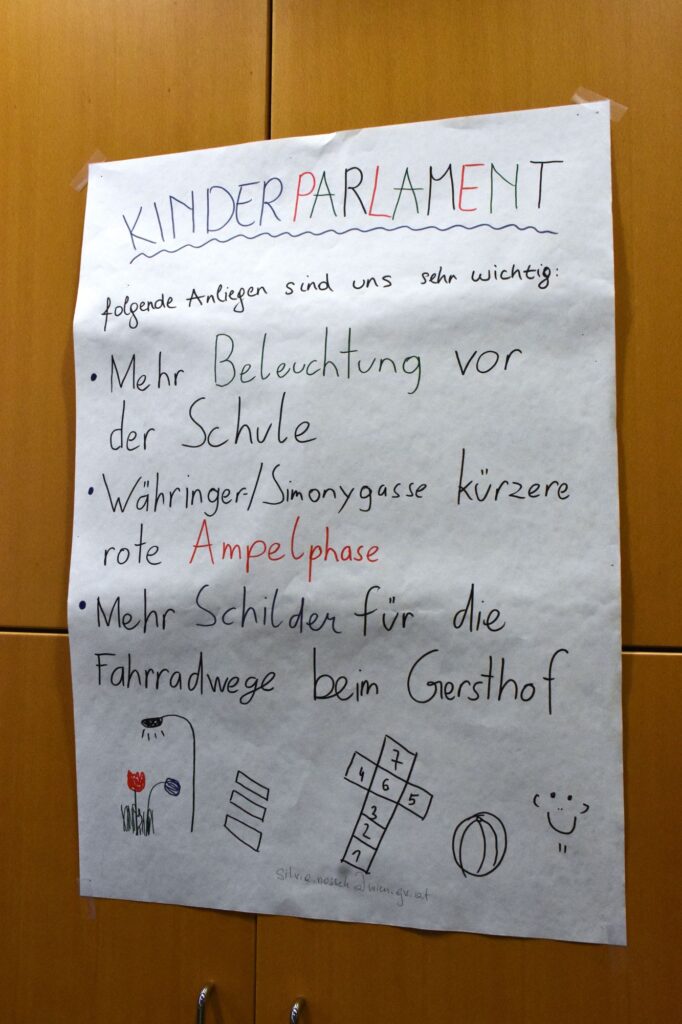 KINDERPARLAMENT
folgende Anliegen sind uns sehr wichtig:
• Mehr Beleuchtung vor
der Schule
• Währinger-/Simonygasse kürzere
rote Ampelphase
• Mehr Schilder für die
Fahrradwege beim Gersthof
7
4 6 5
3
2
1